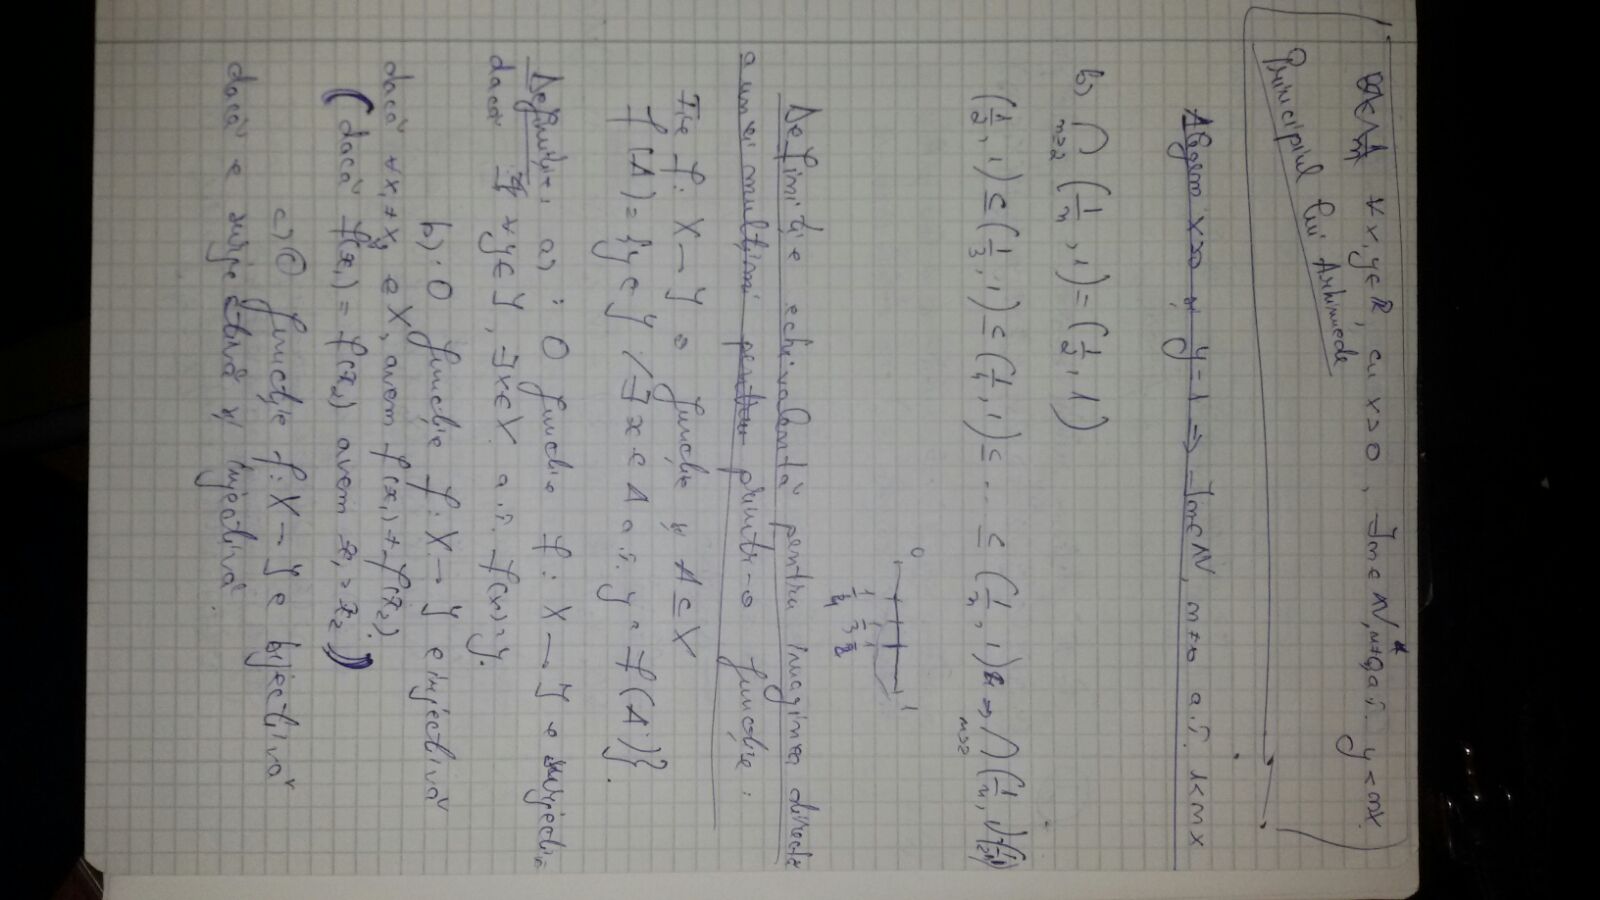 ∀x,y∈ℝ, cu x>0, ∃m∈ℕ*, m≠0, a.î. y<mx.
Principiul lui Arhimede
Alegem x>0 și y=1 => ∃m∈ℕ, m≠0 a.î. 1<mx
b) ⋂ n≥2 (1/n, 1) = (1/2, 1)
(1/2, 1) ⊆ (1/3, 1) ⊆ (1/4, 1) ⊆ ... ⊆ (1/n, 1) => ⋂ n≥2 (1/n, 1) = (1/2, 1)
0 1/4 1/3 1/2 1
Definiție echivalentă pentru imaginea directă
a unei mulțimi printr-o funcție:
Fie f: X → Y o funcție și A ⊆ X
f(A) = {y∈Y / ∃ x∈A a.î. y = f(A)}.
Definiție: a): O funcție f: X → Y e surjectivă
dacă ∀y∈Y, ∃x∈X a.î. f(x)=y.
b): O funcție f: X → Y e injectivă
dacă ∀x₁≠x₂ ∈X, avem f(x₁)≠f(x₂)
(dacă f(x₁) = f(x₂) avem x₁=x₂)
c) O funcție f: X → Y e bijectivă
dacă e surjectivă și injectivă